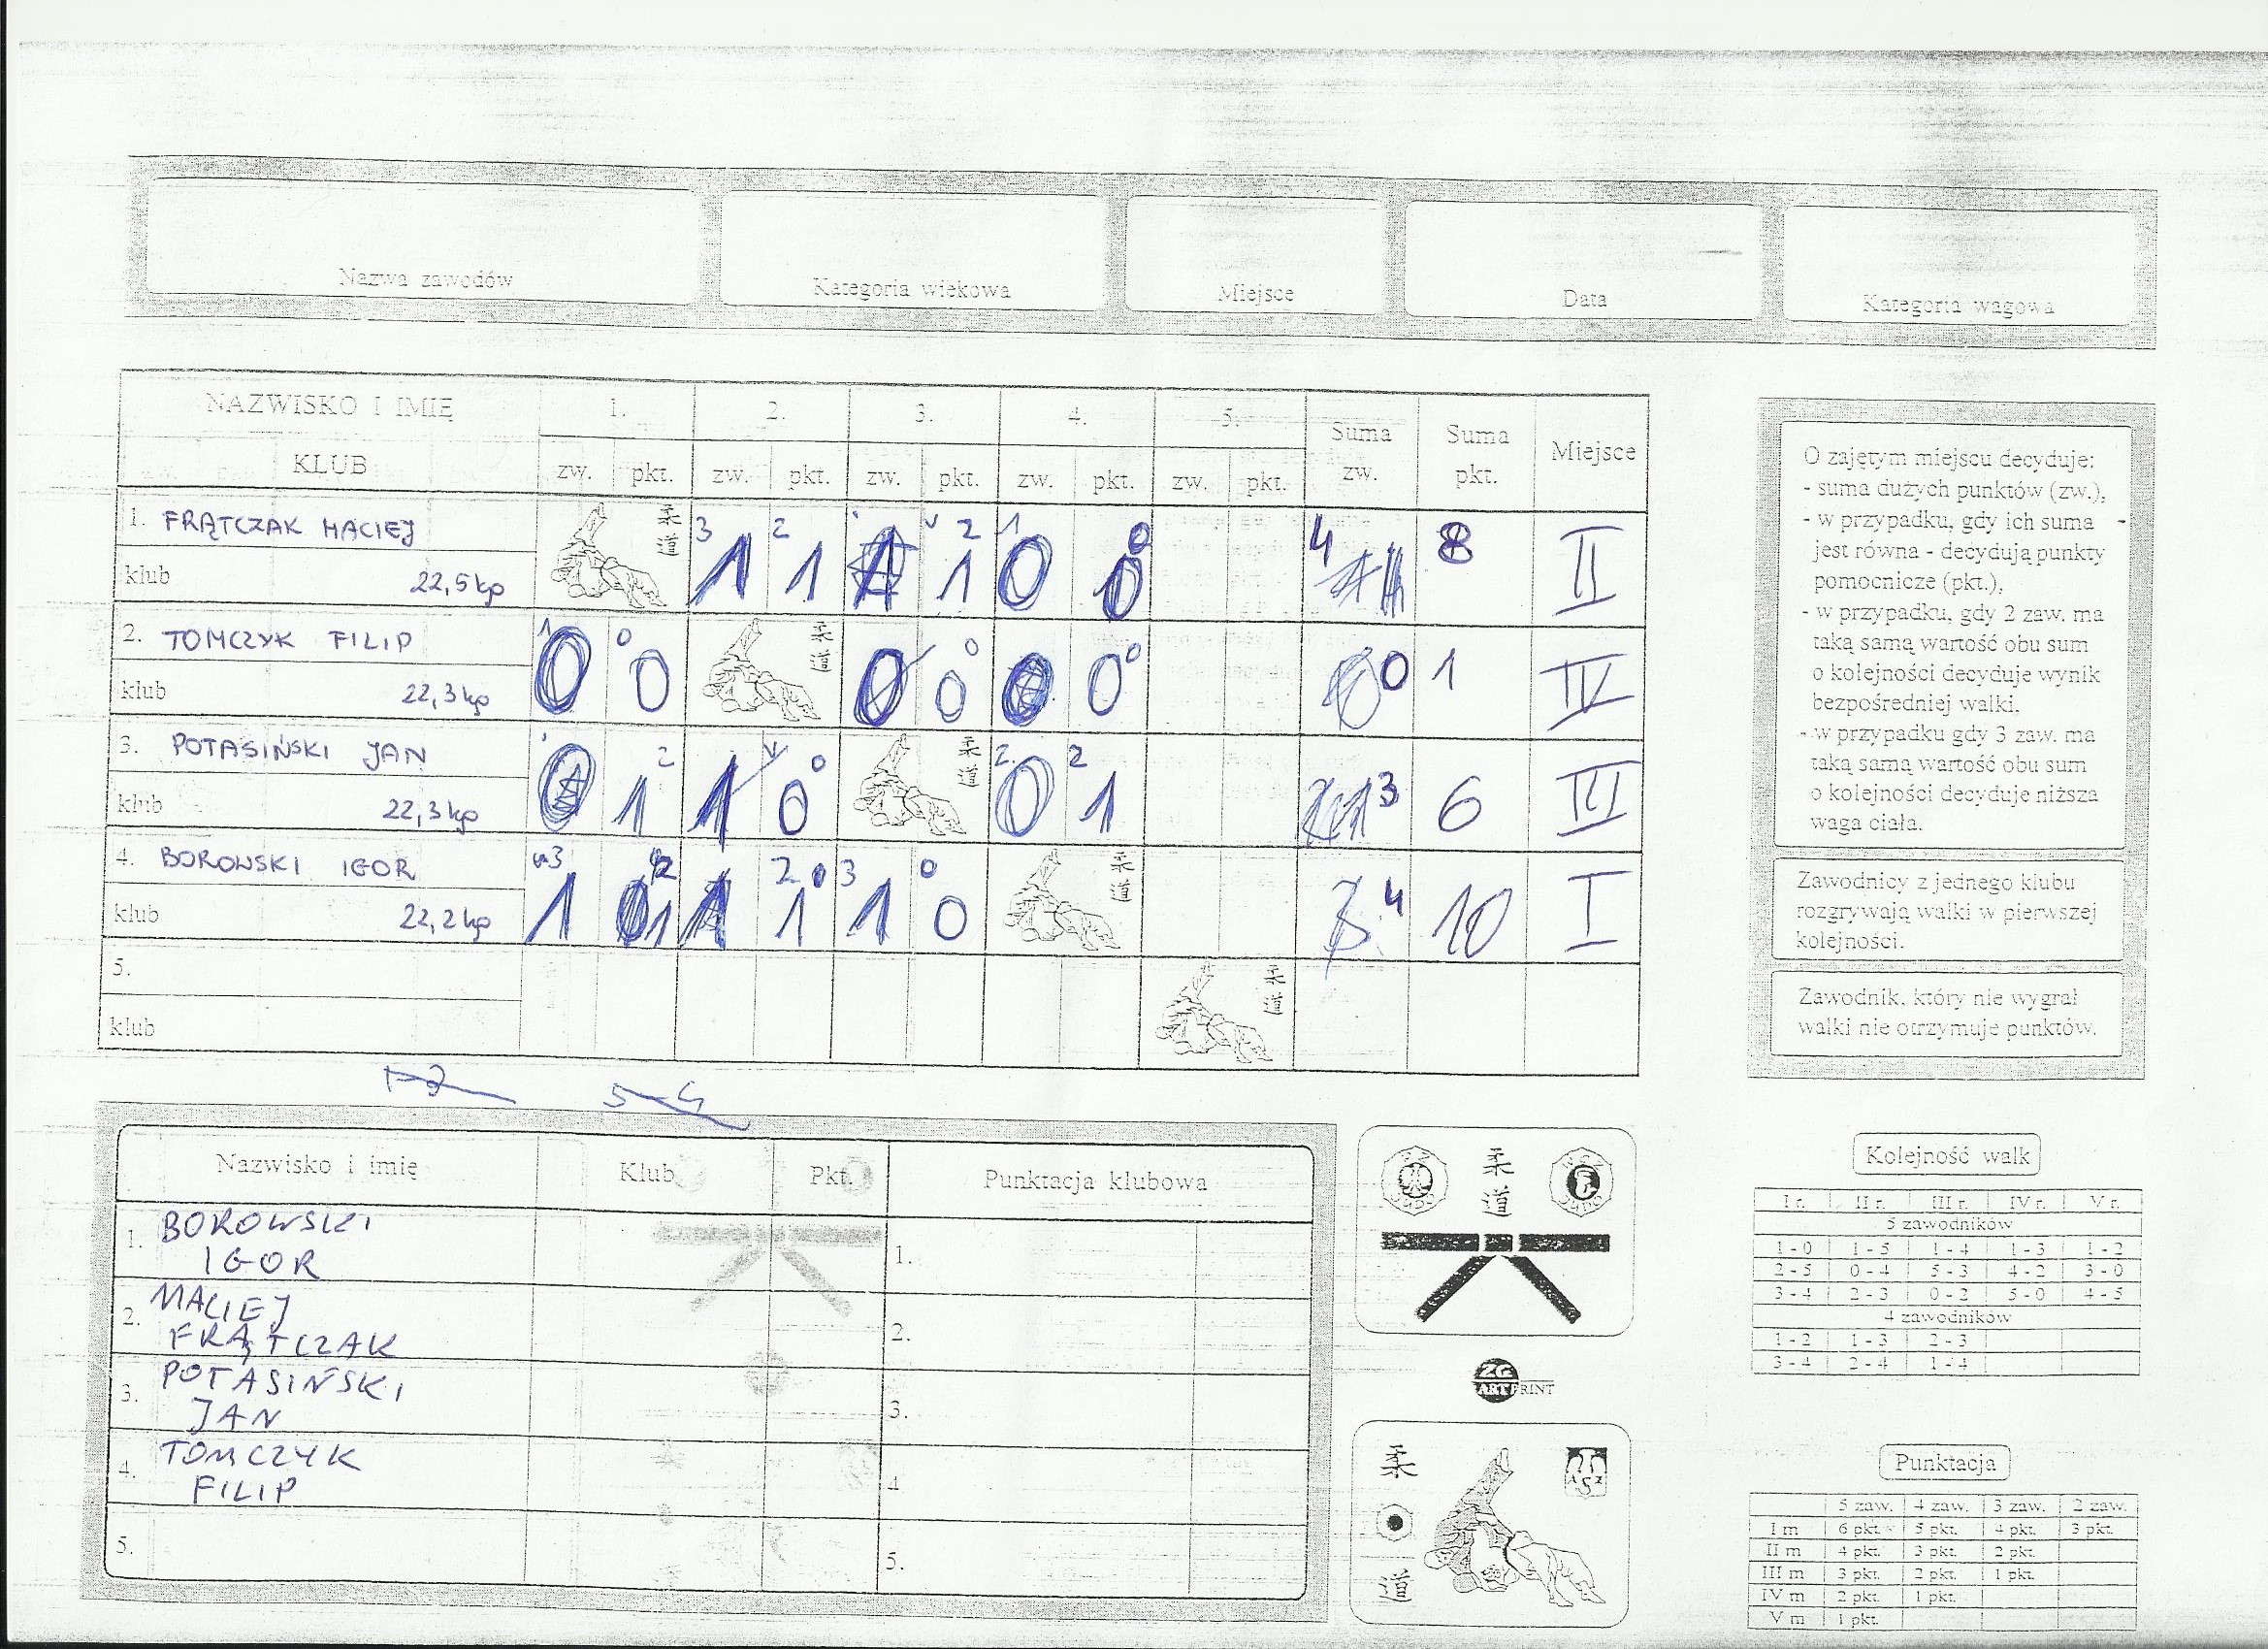 Nazwa zawodów
Kategoria wiekowa
Miejsce
Data
Kategoria wagowa
NAZWISKO I IMIĘ 1. 2. 3. 4. 5. Suma zw. Suma pkt. Miejsce
KLUB zw. pkt. zw. pkt. zw. pkt. zw. pkt. zw. pkt.
1. FRĄTCZAK MACIEJ 3 2 2 1 0 4 8 II
klub 22,5 kg 1 1 1 0
2. TOMCZYK FILIP 1 0 0 0 0 1 IV
klub 22,3 kg 0 0 0 0 0
3. POTASIŃSKI JAN 2 0 2 2 3 6 III
klub 22,3 kg 1 1 0 0 1
4. BOROWSKI IGOR 3 2 2 3 0 4 10 I
klub 22,2 kg 1 1 1 1 0
5.
klub
O zajętym miejscu decyduje:
- suma dużych punktów (zw.),
- w przypadku, gdy ich suma
jest równa - decydują punkty
pomocnicze (pkt.),
- w przypadku, gdy 2 zaw. ma
taką samą wartość obu sum
o kolejności decyduje wynik
bezpośredniej walki.
- w przypadku gdy 3 zaw. ma
taką samą wartość obu sum
o kolejności decyduje niższa
waga ciała.
Zawodnicy z jednego klubu
rozgrywają walki w pierwszej
kolejności.
Zawodnik, który nie wygrał
walki nie otrzymuje punktów.
Nazwisko i imię Klub Pkt. Punktacja klubowa
1. BOROWSKI
IGOR
1.
2. MACIEJ
FRĄTCZAK
2.
3. POTASIŃSKI
JAN
3.
4. TOMCZYK
FILIP
4
5.
5.
柔
道
ZG
ARTPRINT
柔
道
AZS
Kolejność walk
I r. II r. III r. IV r. V r.
5 zawodników
1 - 0 1 - 5 1 - 4 1 - 3 1 - 2
2 - 5 0 - 4 5 - 3 4 - 2 3 - 0
3 - 4 2 - 3 0 - 2 5 - 0 4 - 5
4 zawodników
1 - 2 1 - 3 2 - 3
3 - 4 2 - 4 1 - 4
Punktacja
5 zaw. 4 zaw. 3 zaw. 2 zaw.
I m 6 pkt. 5 pkt. 4 pkt. 3 pkt.
II m 4 pkt. 3 pkt. 2 pkt.
III m 3 pkt. 2 pkt. 1 pkt.
IV m 2 pkt. 1 pkt.
V m 1 pkt.